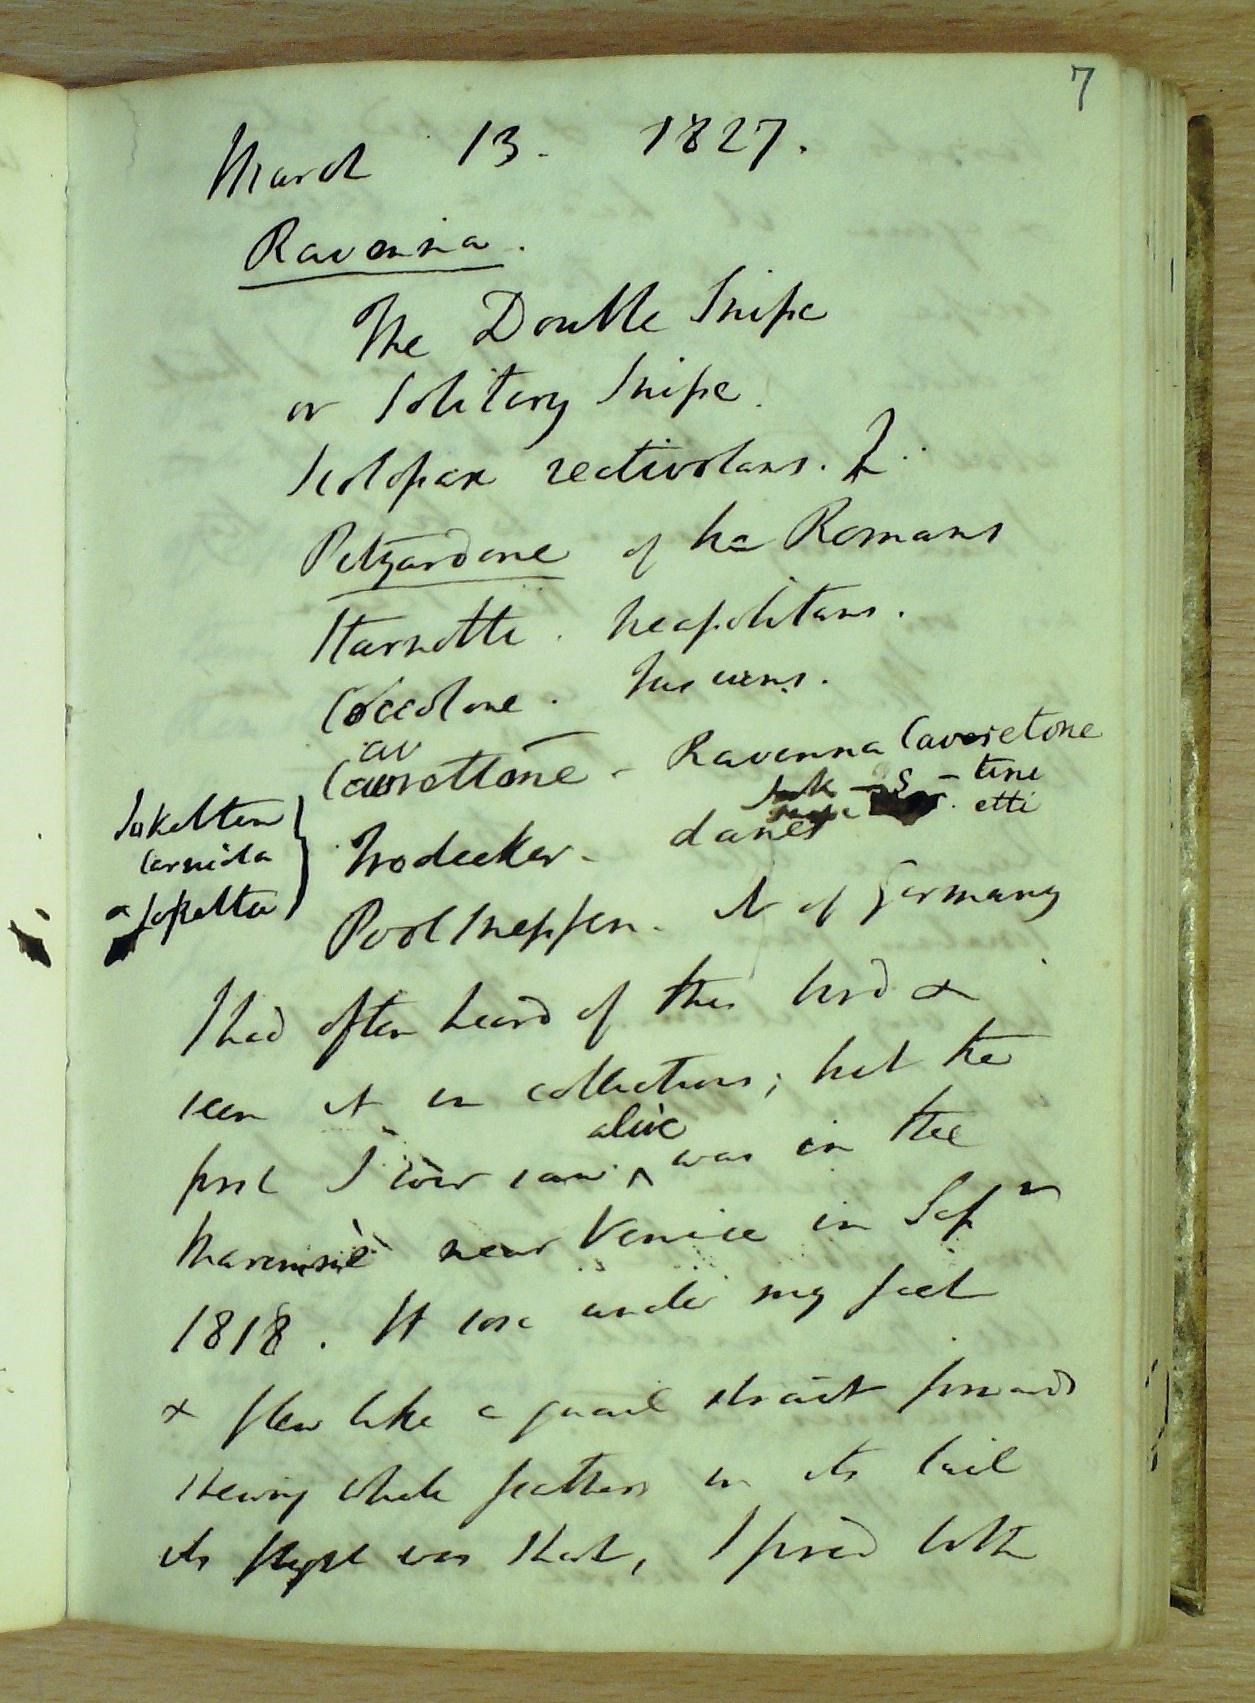 7
March 13. 1827.
Ravenna.
The Double Snipe
or Solitary Snipe.
Scolopax rectivolans.
Pitzardone of the Romans
Starnotti. Neapolitans.
Coccolone. Tuscans.
av
Cavrettone - Ravenna Cavoretone
- tini
etti
Carnida
Trodecker - danes
Poolsnepfen. N of Germany
I had often heard of this bird &
seen it in collections; but the
alive
first I ever saw ^ was in the
near Venice in Sepr
1818. It rose under my feet
& flew like a quail strait forwards
shewing white feathers in its tail
its flight was short, I fired both